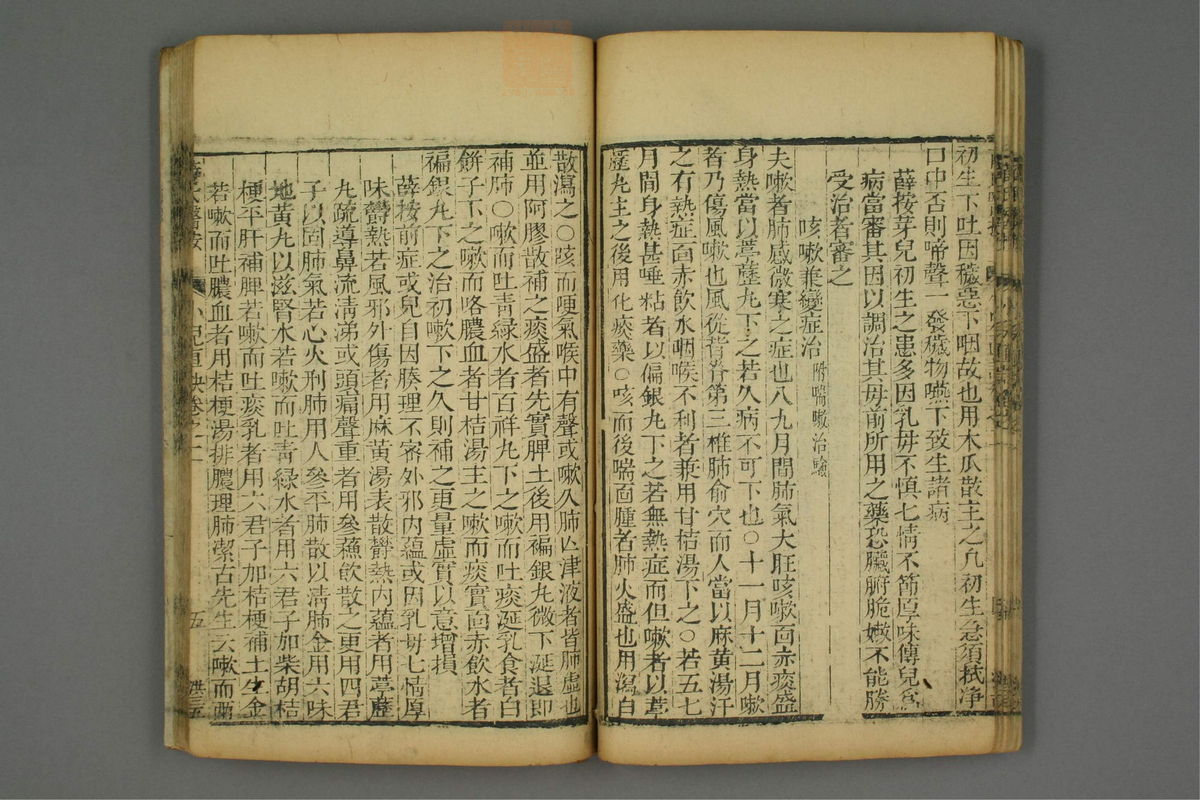 初生下吐因穢惡下咽故也用木瓜散主之凡初生急須拭净
口中否則啼聲一發穢物嚥下致生諸病
薛按芽兒初生之患多因乳母不慎七情不節厚味傳兒爲
病當審其因以調治其母前所用之藥恐臟腑脆嫩不能勝
受治者審之
咳嗽兼變症治附喘嗽治驗
夫嗽者肺感微寒之症也八九月間肺氣大旺咳嗽面赤痰盛
身熱當以葶藶丸下之若久病不可下也〇十一月十二月嗽
者乃傷風嗽也風從背脊第三椎肺俞穴而入當以麻黄湯汗
之有熱症面赤飲水咽喉不利者兼用甘桔湯下之〇若五七
月間身熱甚唾粘者以偏銀丸下之若無熱症而但嗽者以葶
藶丸主之後用化痰藥〇咳而後喘面腫者肺火盛也用瀉白
散瀉之〇咳而哽氣喉中有聲或嗽久肺亾津液者皆肺虛也
並用阿膠散補之痰盛者先實脾土後用褊銀丸微下涎退即
補肺〇嗽而吐青緑水者百祥丸下之嗽而吐痰涎乳食者白
餅子下之嗽而咯膿血者甘桔湯主之嗽而痰實面赤飲水者
褊銀丸下之治初嗽下之久則補之更量虛實以意增損
薛按前症或兒自因腠理不審外邪内蘊或因乳母七情厚
味欝熱若風邪外傷者用麻黄湯表散欝熱内蘊者用葶藶
丸疏導鼻流清涕或頭痛聲重者用參蘓飲散之更用四君
子以固肺氣若心火刑肺用人參平肺散以清肺金用六味
地黄丸以滋腎水若嗽而吐青緑水者用六君子加柴胡桔
梗平肝補脾若嗽而吐痰乳者用六君子加桔梗補土生金
若嗽而吐膿血者用桔梗湯排膿理肺潔古先生云嗽而兩
薛氏醫按
小兒直訣卷之一
五